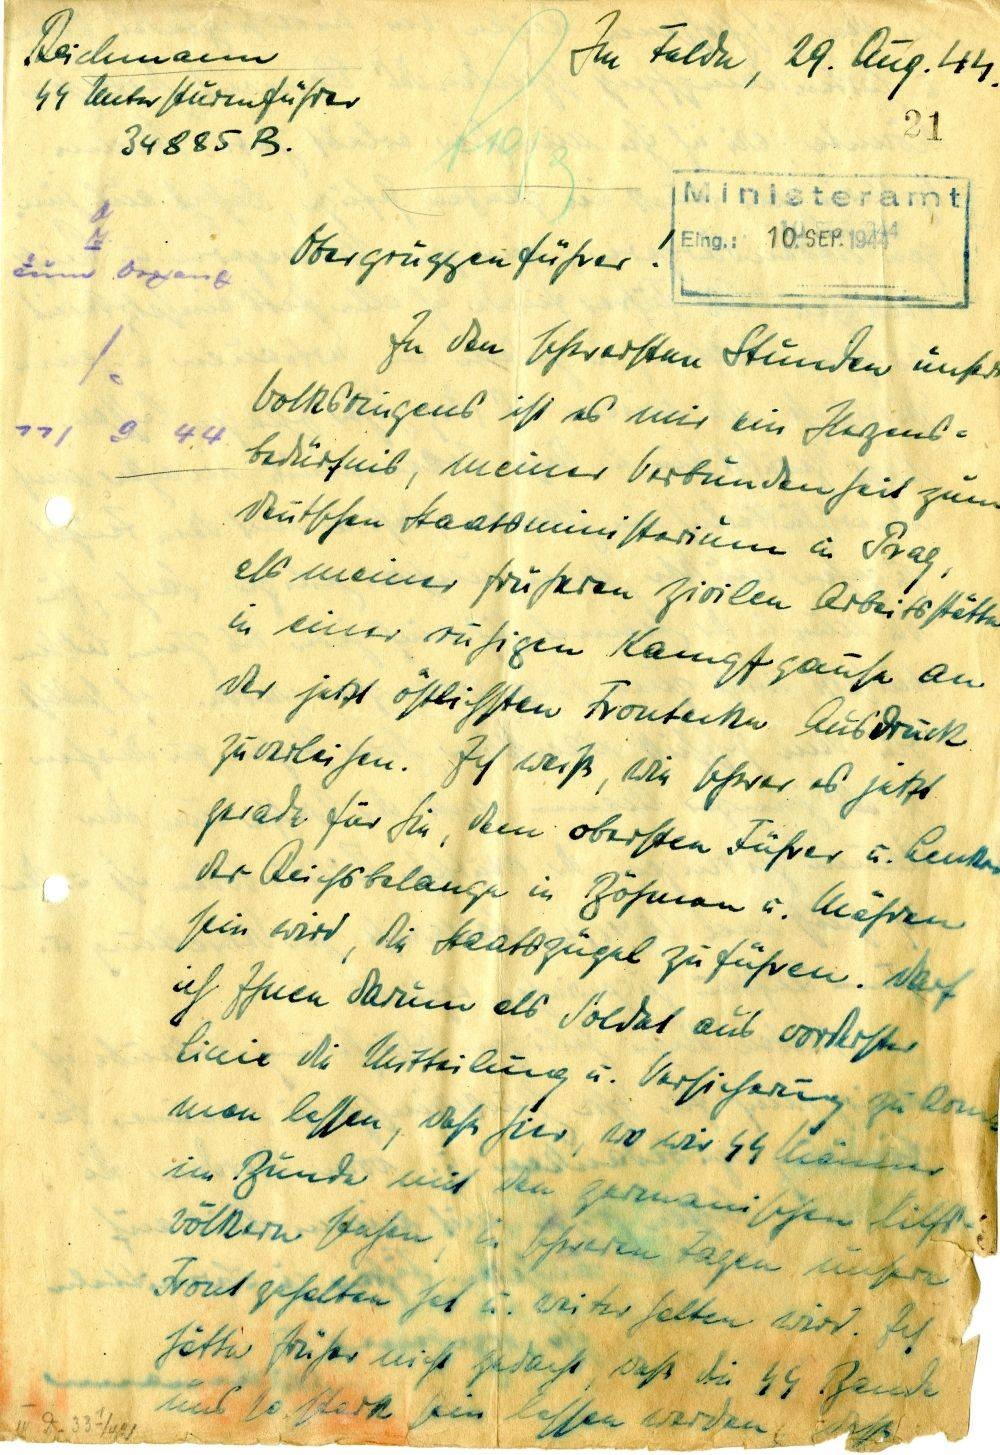 Reichmann
SS Untersturmführer
34885 B.
Im Felde, 29. Aug. 44.
21
Ministeramt
Eing.: 10. SEP. 1944
Obergruppenführer!
zum
11/ 9 44
In den schwersten Stunden unsers
Volksringens ist es mir ein Herzens-
bedürfnis, meiner Verbundenheit zum
deutschen Staatsministerium in Prag,
als meiner früheren zivilen Arbeitsstätte
in einer ruhigen Kampfpause an
der jetzt östlichsten Frontecke Ausdruck
zuverleihen. Ich weiß, wie schwer es jetzt
gerade für Sie, dem obersten Führer u. Lenker
der Reichsbelange in Böhmen u. Mähren
sein wird, die Staatszügel zu führen. Darf
ich Ihnen darum als Soldat aus vorderster
Linie die Mitteilung u. Versicherung zu kom
men lassen, daß hier, wo wir SS Männer
im Bunde mit den germanischen Hilfs-
völkern stehen, in schweren Tagen unsere
Front gehalten hat u. weiter halten wird. Ich
hätte früher nicht gedacht, daß die SS Bande
uns so stark sein lassen werden, daß